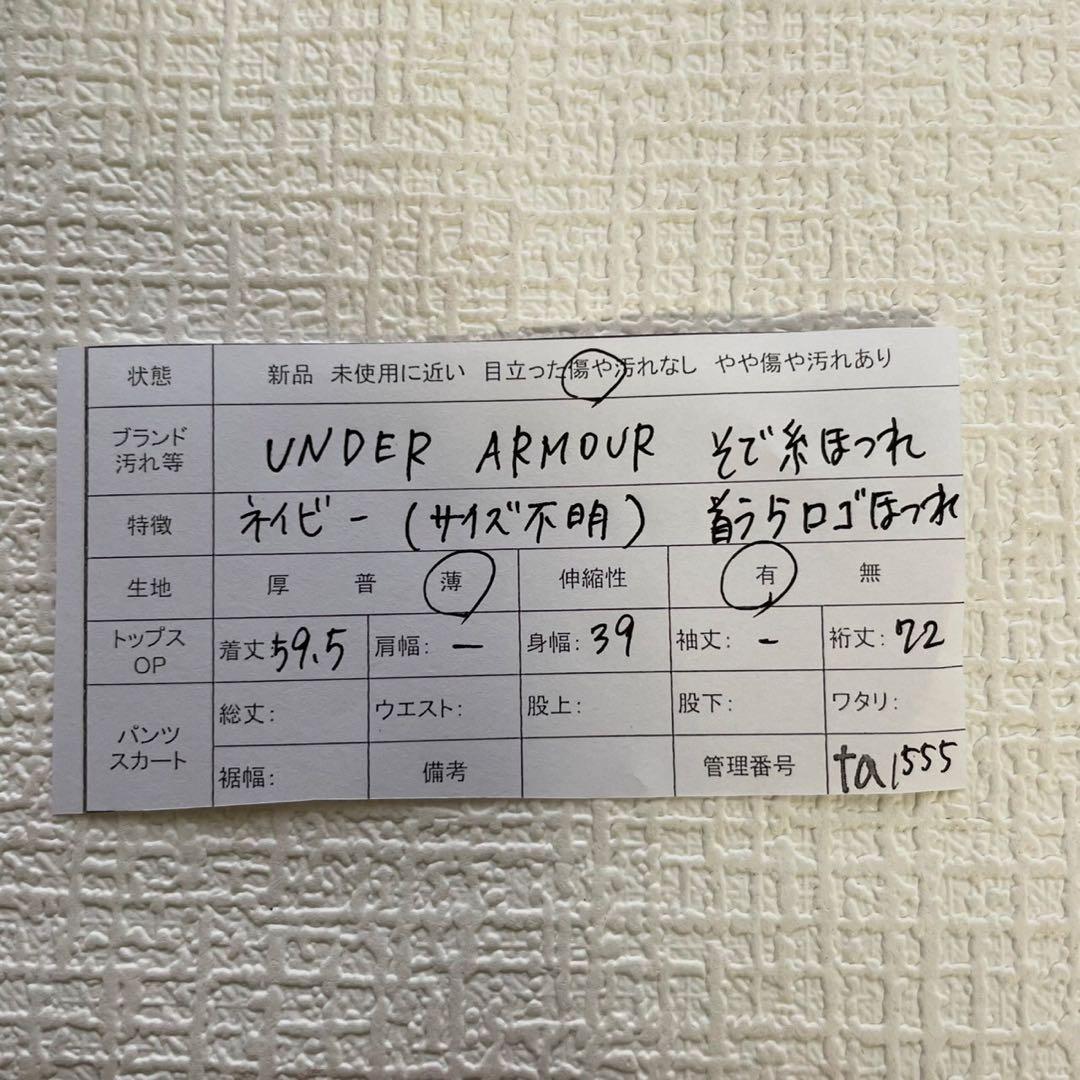 状態 新品 未使用に近い 目立った傷や汚れなし やや傷や汚れあり
ブランド 汚れ等 UNDER ARMOUR そで糸ほつれ
特徴 ネイビー (サイズ不明) 首うらロゴほつれ
生地 厚 普 薄 伸縮性 有 無
トップス OP 着丈 59.5 肩幅: ー 身幅: 39 袖丈: - 裄丈: 72
パンツ スカート 総丈: ウエスト: 股上: 股下: ワタリ:
裾幅: 備考 管理番号 ta1555